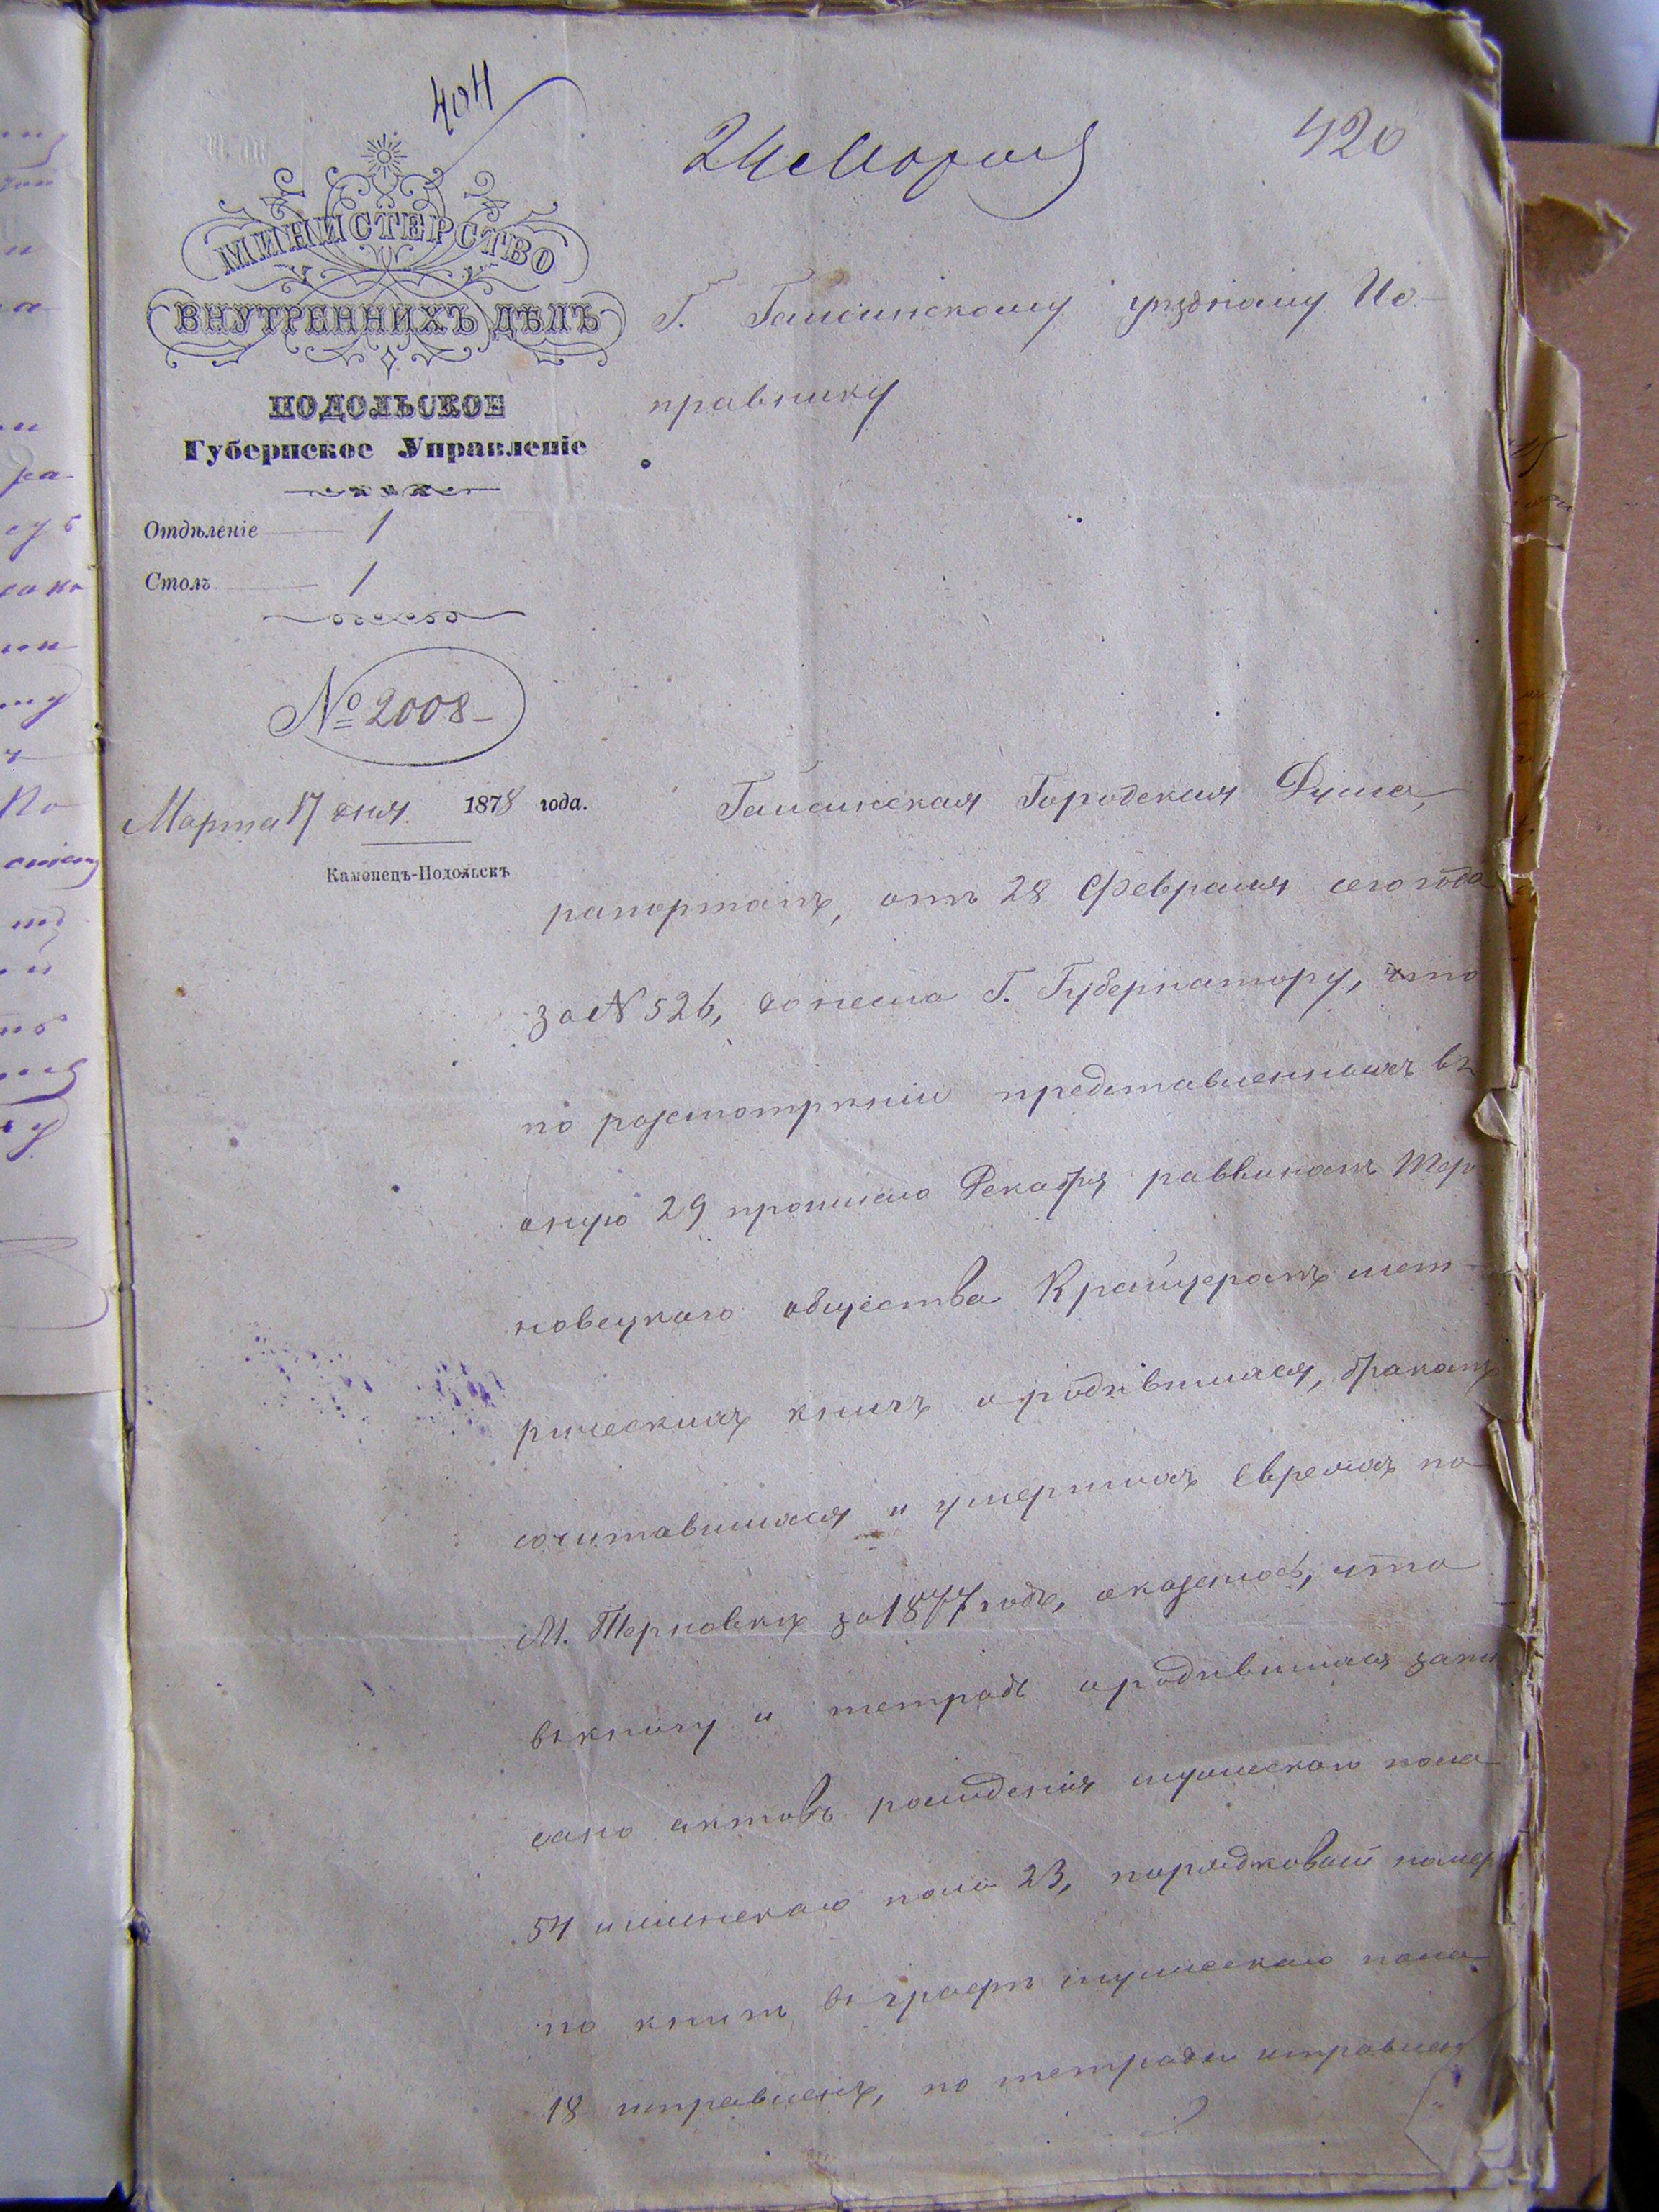 404
24 Марта
420
МИНИСТЕРСТВО
ВНУТРЕННИХЪ ДѢЛЪ
ПОДОЛЬСКОЕ
Губернское Управленіе
Отдѣленіе 1
Столъ 1
№ 2008
Марта 17 дня 1878 года.
Каменецъ-Подольскъ
Г. Гайсинскому уѣздному Ис-
правнику
Гайсинская Городская Дума,
рапортомъ, отъ 28 Февраля сего года
за № 526, донесла Г. Губернатору, что
по разсмотрѣніи представленныхъ въ
оную 29 прошлаго Декабря раввиномъ Тер-
новецкаго общества Крайцеромъ мет-
рическихъ книгъ о родившихся, бракомъ
сочитавшихся и умершихъ Евреяхъ по
М. Терновкѣ за 1877 годъ, оказалось, что
въ книгу и тетрадь о родившихся запи
сано актовъ рожденія мужескаго пола
54 и женскаго пола 23, порядковый номеръ
по книгѣ въ графѣ мужескаго пола
18 исправленъ, по тетради исправлен